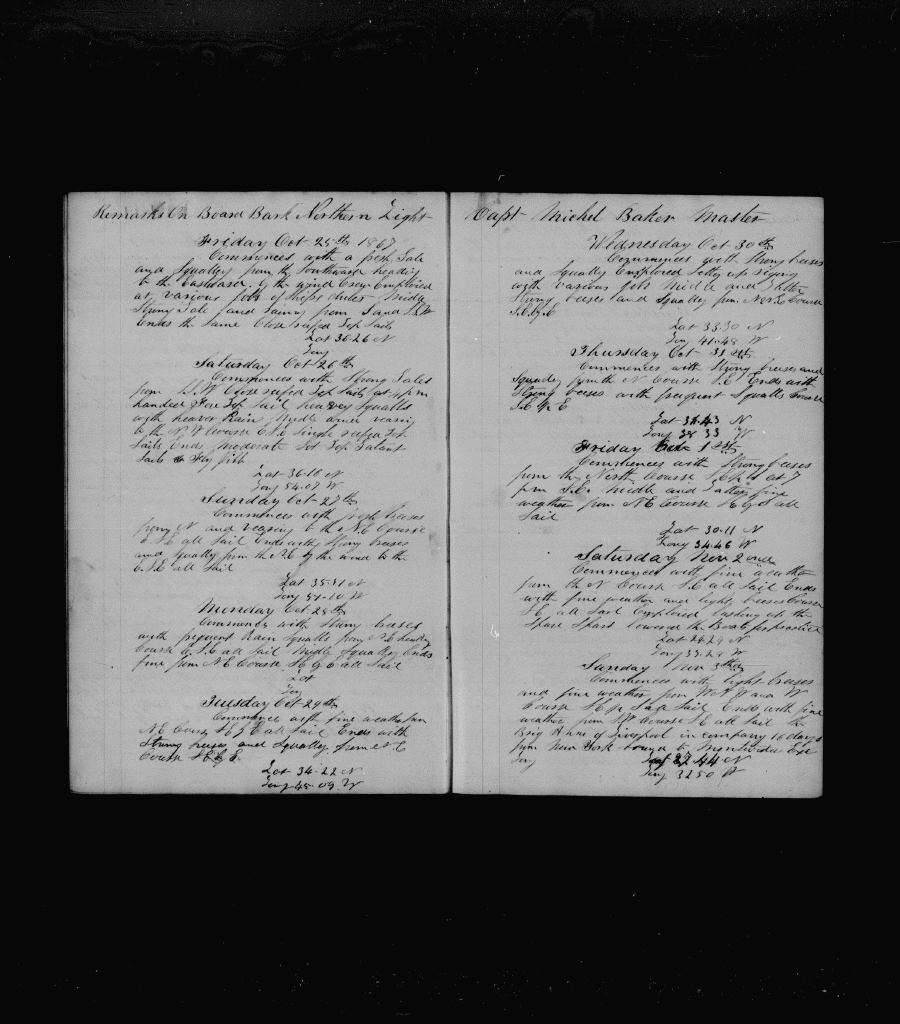 Remarks On Board Bark Northern Light
Friday Oct 25th 1867
Commences with a fresh Gale
and Squalley from the Southward heading
to the Eastward by the wind Crew Employed
at various Jobs of Ships duties Middle
Strong Gale and rainy from S and S.W
Ends the Same Close reefed Top Sails
Lat 36-26 N
Long
Saturday Oct 26th
Commences with Strong Gales
from S.W Close reefed Top Sails at 4 pm
handed Fore Top Sail heavey Squalls
with heavey Rain Middle veering
to the N.W Course E.S. Single reefed Top
Sails Ends moderate Set Top Galant
Sails & Fly Jibb
Lat 36-10 N
Long 54-07 W
Sunday Oct 27th
Commences with fresh breeses
from N and veering to the N.E Course
E.S.E all Sail Ends with Strong breeses
and Squally from the N.E by the wind to the
E.S.E all Sail
Lat 35-11 N
Long 51-10 W
Monday Oct 28th
Commences with Strong breeses
with frequent Rain Squalls from N.E heading
Course E.S.E all Sail Middle Squalley Ends
fine from N.E Course S.E by E all Sail
Lat
Long
Tuesday Oct 29th
Commence with fine weather from
N.E Course S.E by E all Sail Ends with
Strong breeses and Squally from N.E
Course S.E by E
Lat 34-22 N
Long 45-09 W
Capt Michel Baker Master
Wednesday Oct 30th
Commences with Strong breeses
and Squally Employed Setting up riging
with various Jobs Middle and Latter
Strong breeses and Squally from N.E Course
S.E by E
Lat 33-30 N
Long 41-48 W
Thursday Oct 31st
Commences with Strong breeses and
Squaley from the N Course S.E Ends with
Strong breeses with frequent Squalls Course
S.E by E
Lat 31-43 N
Long 38 33 W
Friday 1st
Commences with Strong breeses
from the North Course S.E at 7
pm S.E. Middle and Latter fine
weather from N.E Course S.E by S all
Sail
Lat 30-11 N
Long 34-46 W
Saturday Nov 2nd
Commences with fine weather
from the N Course S.E all Sail Ends
with fine weather and light breeses Course
S.E all Sail Employed lashing up the
Spare Spars lowered the Boats for practice
Lat 29-29 N
Long 33-29 W
Sunday Nov 3th
Commences with light breeses
and fine weather from W.N.W and W
Course S.E Sail Ends with fine
weather from S.W Course S.E all Sail the
Brig of Liverpool in company 16 days
from New York bound to Montivideo
Long Lat 27 44 N
Long 32 50 W